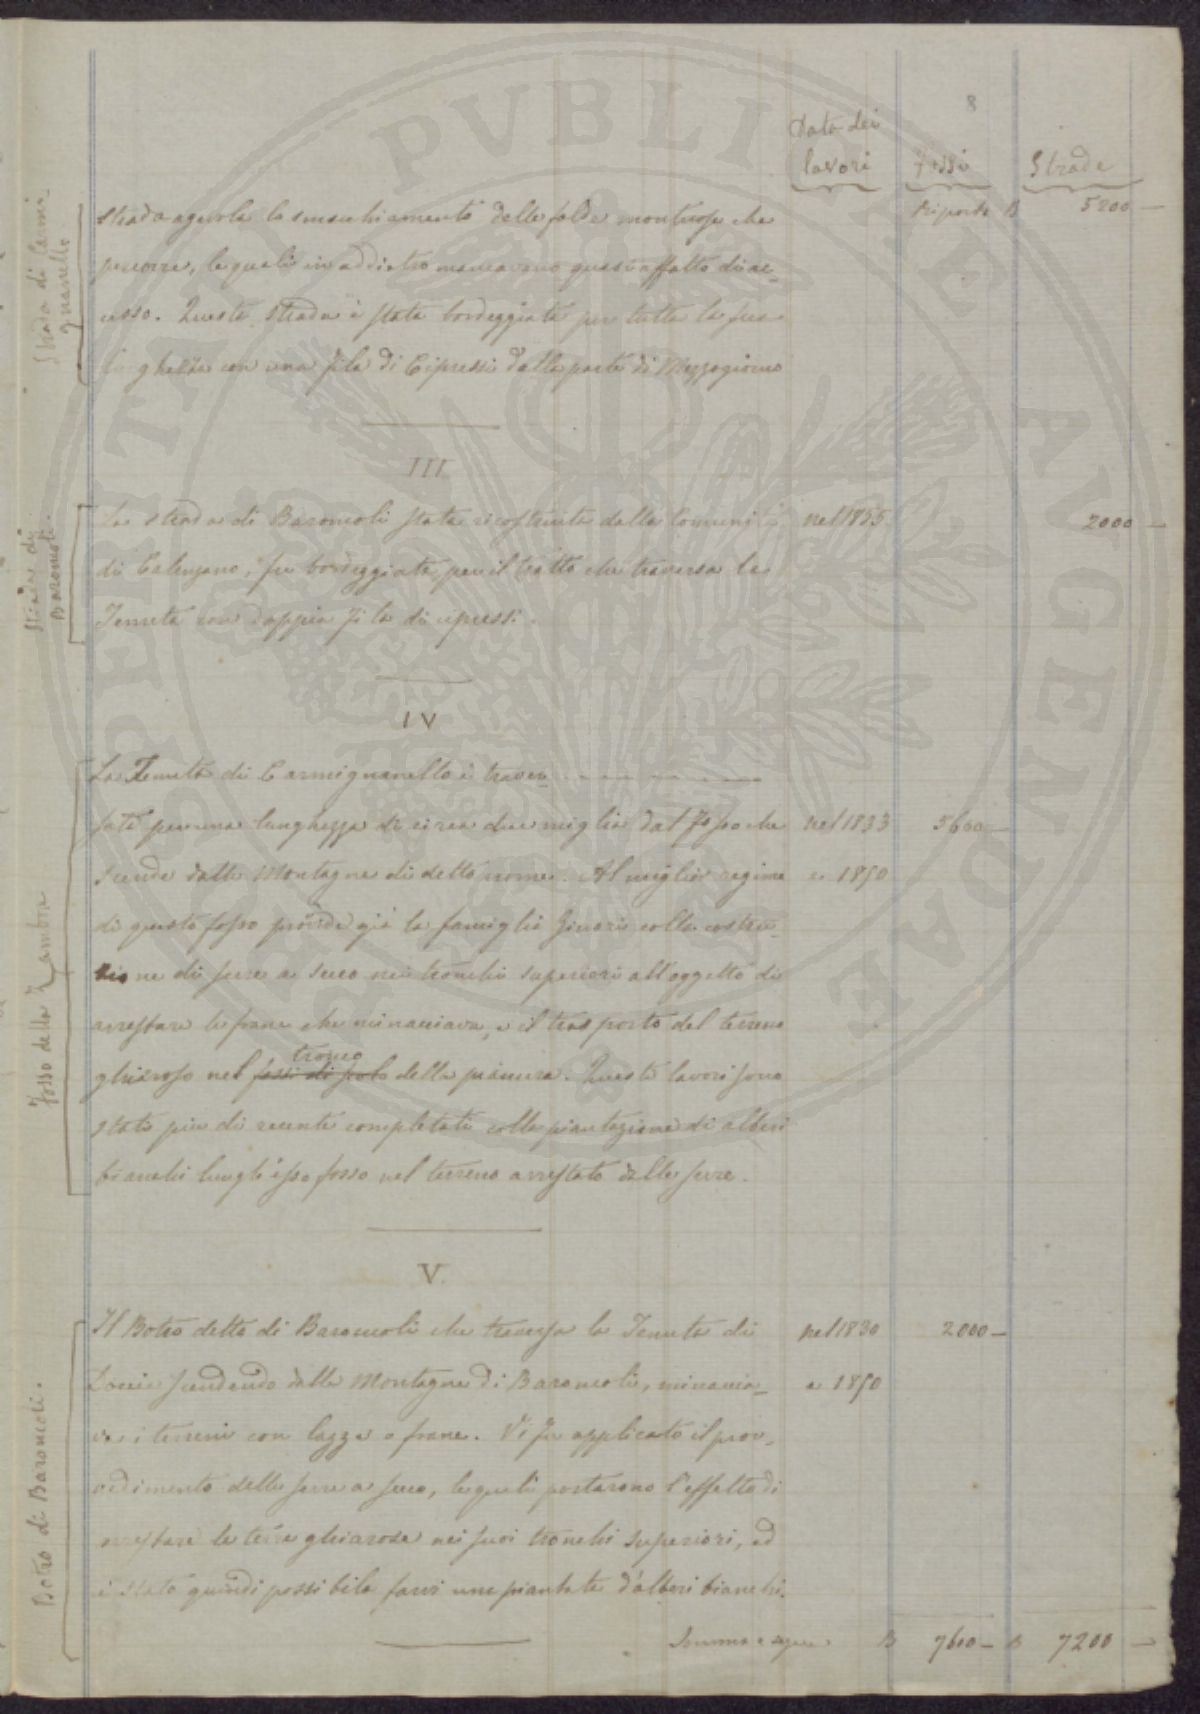 8
Data dei
lavori
Fossi
Strade
Riporto
5200 —
Strada di Carmi-
gnanello
strada agevola lo smacchiamento delle falde montuose che
percorre, le quali in addietro mancavano quasi affatto di ac-
cesso. Questa strada è stata bordeggiata per tutta la sua
lunghezza con una fila di Cipressi dalla parte di Mezzogiorno
III
Strada di
Baroncoli.
La strada di Baroncoli stata ricostruita dalla Comunità nel 1855 2000 —
di Calenzano, fu bordeggiata per il tratto che traversa la
Tenuta con doppia fila di cipressi.
IV
Fosso della Zambra
La Tenuta di Carmignanello è traver-
sata per una lunghezza di circa due miglia dal Fosso che nel 1833 5600 —
scende dalla Montagna di detto nome. Al miglior regime e 1850
di questo fosso provvide già la famiglia Ginori colla costru-
zione di serre a secco nei tronchi superiori all'oggetto di
arrestare le frane che minacciava, e il trasporto del terreno
tronco
ghiaroso nel della pianura. Questi lavori sono
stati più di recente completati colla piantazione di alberi
bianchi lungh'esso fosso nel terreno arrestato dalle serre.
V.
Botro di Baroncoli.
Il Botro detto di Baroncoli che traversa la Tenuta di nel 1830 2000 —
Doccia scendendo dalla Montagna di Baroncoli, minaccia- e 1850
va i terreni con lazze o frane. Vi fu applicato il prov-
vedimento delle serre a secco, le quali portarono l'effetto di
arrestare le terre ghiarose nei suoi tronchi superiori, ed
è stato quindi possibile farvi una piantata d'alberi bianchi.
Somma e segue 7600 — 7200 —
PVBLICAE AVGENDAE PROSPERITATI